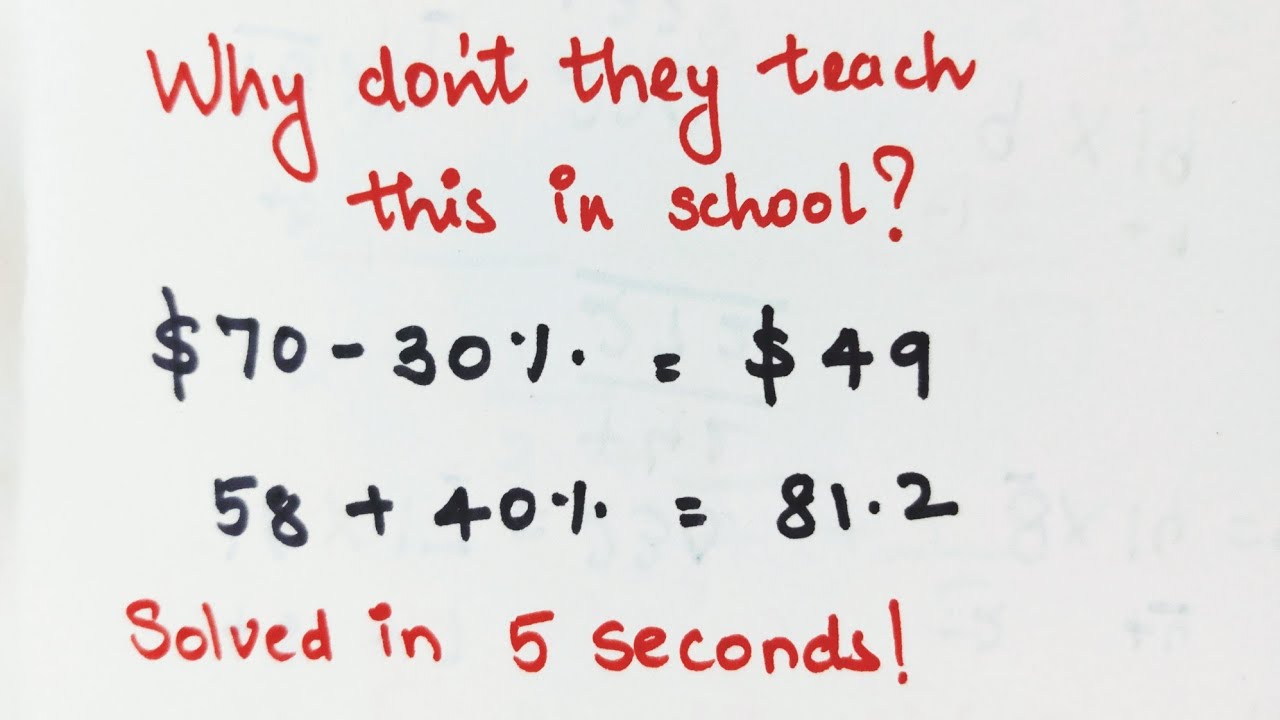 Why don't they teach
this in school?
$70 - 30% = $49
58 + 40% = 81.2
Solved in 5 seconds!